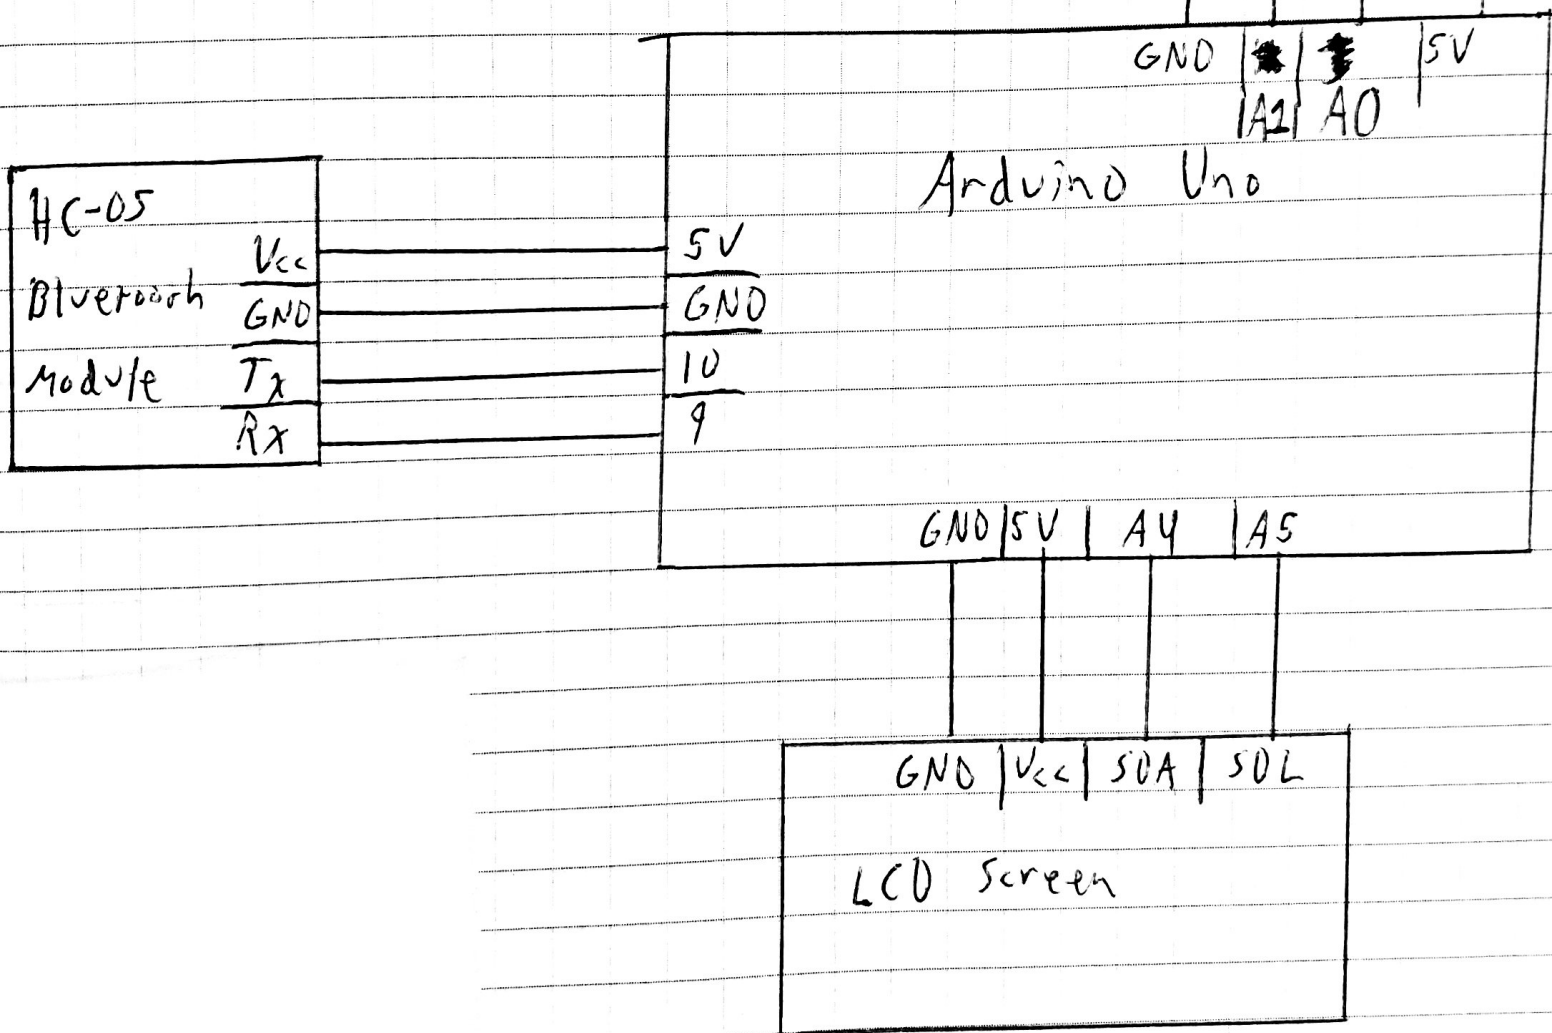 GND | | | 5V
|A1| A0
Arduino Uno
HC-05
Bluetooth
Module
Vcc
GND
Tx
Rx
5V
GND
10
9
GND|5V | A4 |A5
GND |Vcc| SDA | SDL
LCD Screen